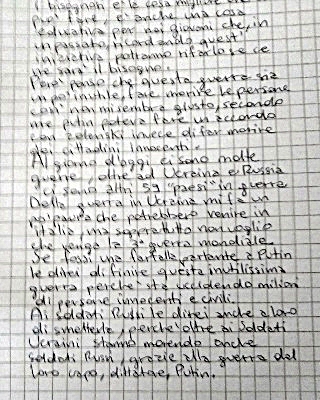 i bisognon è la cosa migliore che
puo' fare, e' anche una cosa
educativa per noi giovani che, in
in passato, ricordando quest'
iniziativa potranno rifarlo se ce
ne sara' il bisogno.
Pero' penso che questa guerra sia
un po' inutile, fare morire le persone
cosi' non mi sembra giusto, secondo
me putin poteva fare un accordo
con zelenski invece di far morire
dei cittadini innocenti.
Al giorno d'oggi ci sono molte
guerre, oltre ad Ucraina e Russia
ci sono altri 59 "paesi" in guerra
Della guerra in Ucraina mi fa un
po' paura che potrebbero venire in
italia, ma soprattutto non voglio
che venga la 3ª guerra mondiale.
Se fossi una farfalla parlante a Putin
le direi di finire questa inutilissima
guerra perche' sta uccidendo milioni
di persone innocenti e civili.
Ai soldati Russi le direi anche a loro
di smetterla, perche' oltre ai Soldati
Ucraini stanno morendo anche
soldati Russi, grazie alla guerra del
loro capo, dittatore, Putin.